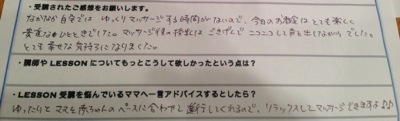 ・受講されたご感想をお願いします。
なかなか自分では ゆっくりマッサージする時間がないので、今日のお教室はとても楽しく
貴重なひとときでした。マッサージ後の授乳は ごきげんで ニコニコして声を出しながら でした。
とても幸せな気持ちになりました。
・講師やLESSONについてもっとこうして欲しかったという点は?
・LESSON受講を悩んでいるママへ一言アドバイスするとしたら?
ゆったりと ママと赤ちゃんの ペースに合わせて 進行してくれるので、リラックスして マッサージできますよ♪♪